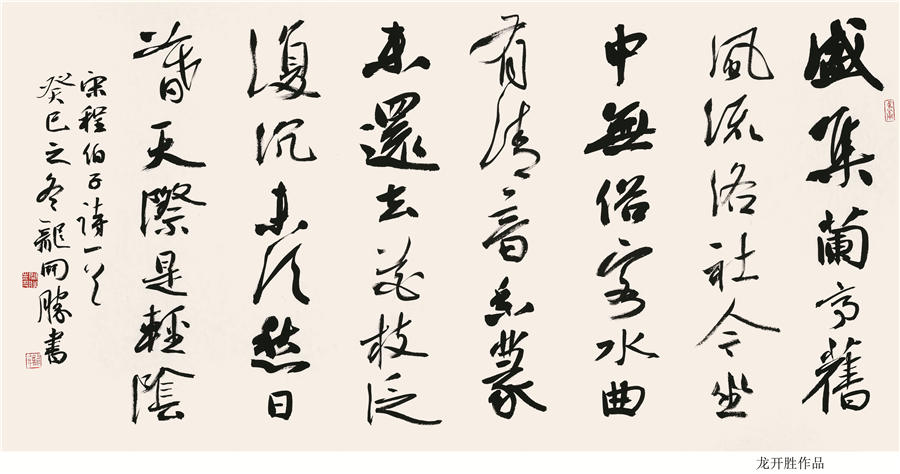 盛集蘭亭舊
風流洛社今坐
中無俗客水曲
有清音香篆
来還去花枝泛
復沉未須愁日
暮天際是輕陰
宋程伯子詩一首
癸巳之冬龍開勝書
龙开胜作品